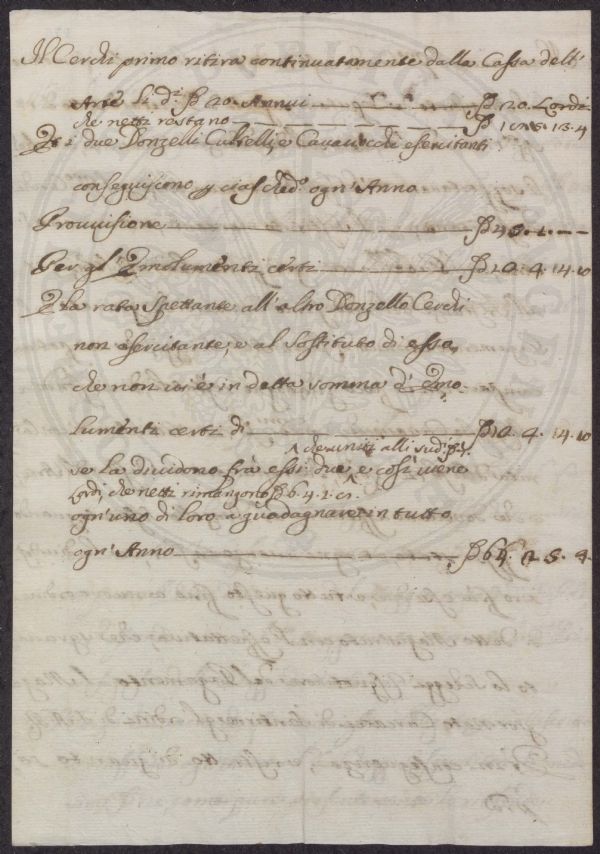 Il Cerchi primo ritira continuatamente dalla Cassa dell'
Arte li d.i ₽ 20. Annui ₽ 20. Lordi
che netti restano ₽ 13. 4
E i due Donzelli Cultelli, e Cavaciocchi esercitanti
conseguiscono p ciasched.o ogn'Anno
Provvisione ₽ 45. 1. — —
Per gl'Emolumenti certi ₽ 10. 4. 14. 10
E la rata spettante all'altro Donzello Cerchi
non esercitante, e al sostituto di esso,
che non si è in detta somma d'Emo-
lumenti certi di ₽ 10. 4. 14. 10
che uniti alli sud.i
se la dividono frà essi due, e così viene
Lordi, che netti rimangono ₽ 64. 2.
ogn'uno di loro a guadagnare in tutto
ogn'Anno ₽ 64. 2. 5. 4